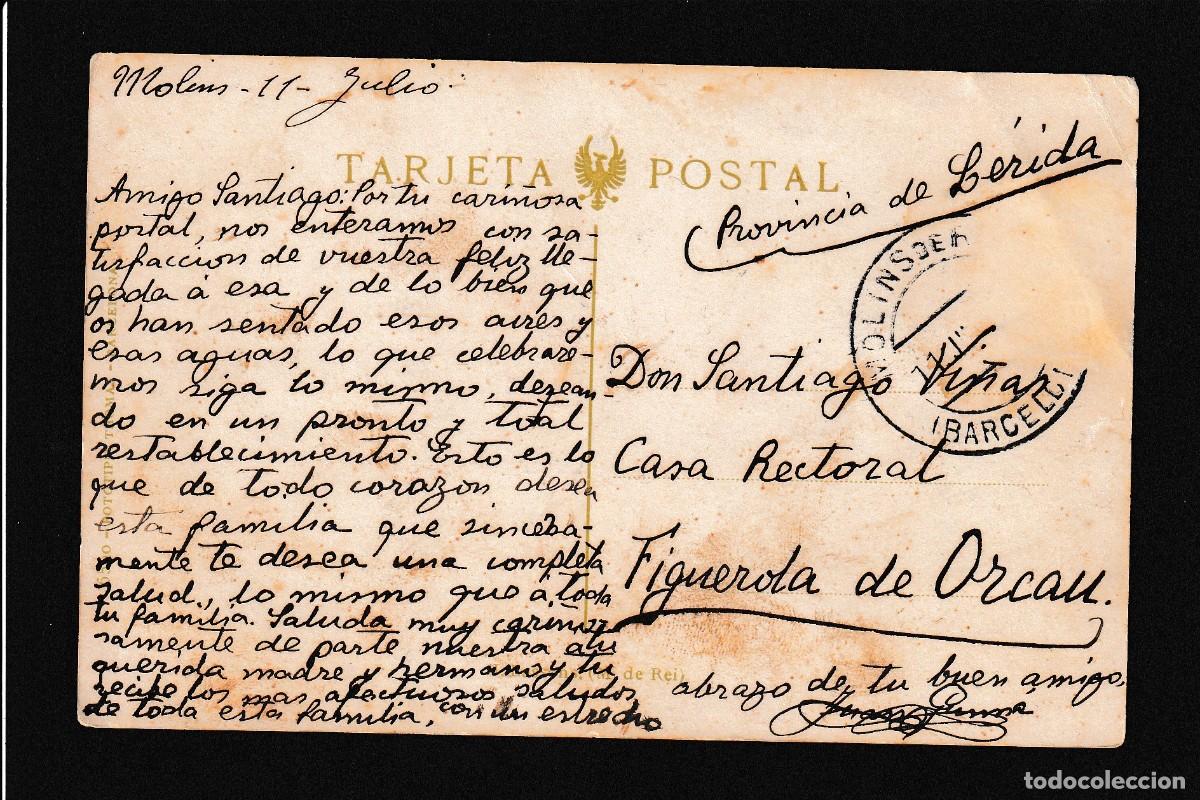 Molins - 11 - Julio.
TARJETA POSTAL
Amigo Santiago: Por tu cariñosa
postal, nos enteramos con sa-
tisfaccion de vuestra feliz lle-
gada á esa y de lo bien que
os han sentado esos aires y
esas aguas, lo que celebrare-
mos siga lo mismo, desean-
do en un pronto y total
restablecimiento. Esto es lo
que de todo corazon desea
esta familia que sincera-
mente te desea una completa
salud, lo mismo que á toda
tu familia. Saluda muy cariño-
samente de parte nuestra a tu
querida madre y hermano y tu
recibe los mas afectuosos saludos
de toda esta familia, con un estrecho
abrazo de tu buen amigo,
Juan
Provincia de Lérida
MOLINS DE R
11
(BARCEL
Don Santiago Viñas
Casa Rectoral
Figuerola de Orcau.
de Rei)
todocoleccion